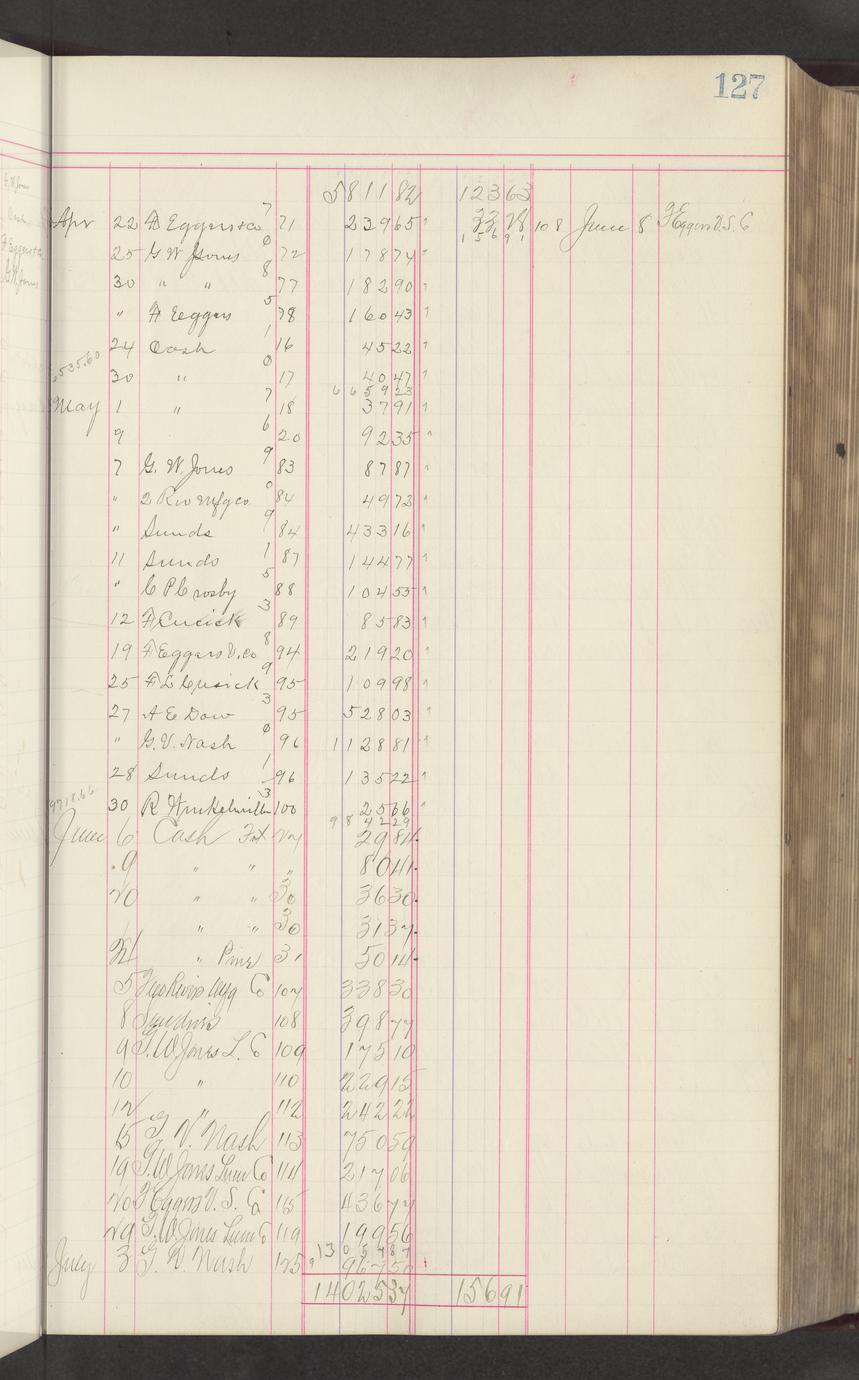 127
5811 82 123 63
Apr 22 F Eggers & Co 7 71 239 65 33 28 108 June 8 F Eggers V. S. C
25 G W Jones 0 72 178 74 156 91
30 " " 8 77 182 90
" F Eggers 5 78 160 43
24 Cash 1 16 45 22
2535.60
30 " 0 17 40 47
6659 23
May 1 " 7 18 37 91
9 6 20 92 35
7 G. W. Jones 9 83 87 87
" 2 Riv Mfg Co 0 84 49 72
" Sunds 9 84 433 16
11 Sunds 1 87 144 77
" C P Crosby 5 88 104 55
12 F Cusick 3 89 85 83
19 F Eggers V. Co 8 94 219 20
25 F L Cusick 9 95 109 98
27 A E Dow 3 95 528 03
" G. V. Nash 0 96 1128 81
28 Sunds 1 96 135 22
9718.66
30 R 3 100 25 66
9842 29
June 6 Cash Fox 29 84
9 " " " 80 41
20 " " 30 36 30
" " 30 31 37
" Pine 31 50 14
5 Two Rivers Mfg Co 107 338 30
8 Sundries 108 398 77
9 G. W Jones L. C 109 175 10
10 " 110 229 15
12 " 112 242 22
15 G V. Nash 113 750 59
19 G. W Jones Lum Co 114 217 06
20 F Eggers V. S. Co 115 436 77
29 G. W Jones Lum C 119 199 56
13057 87
July 3 G. V. Nash 125 967 50
14025 37 156 91